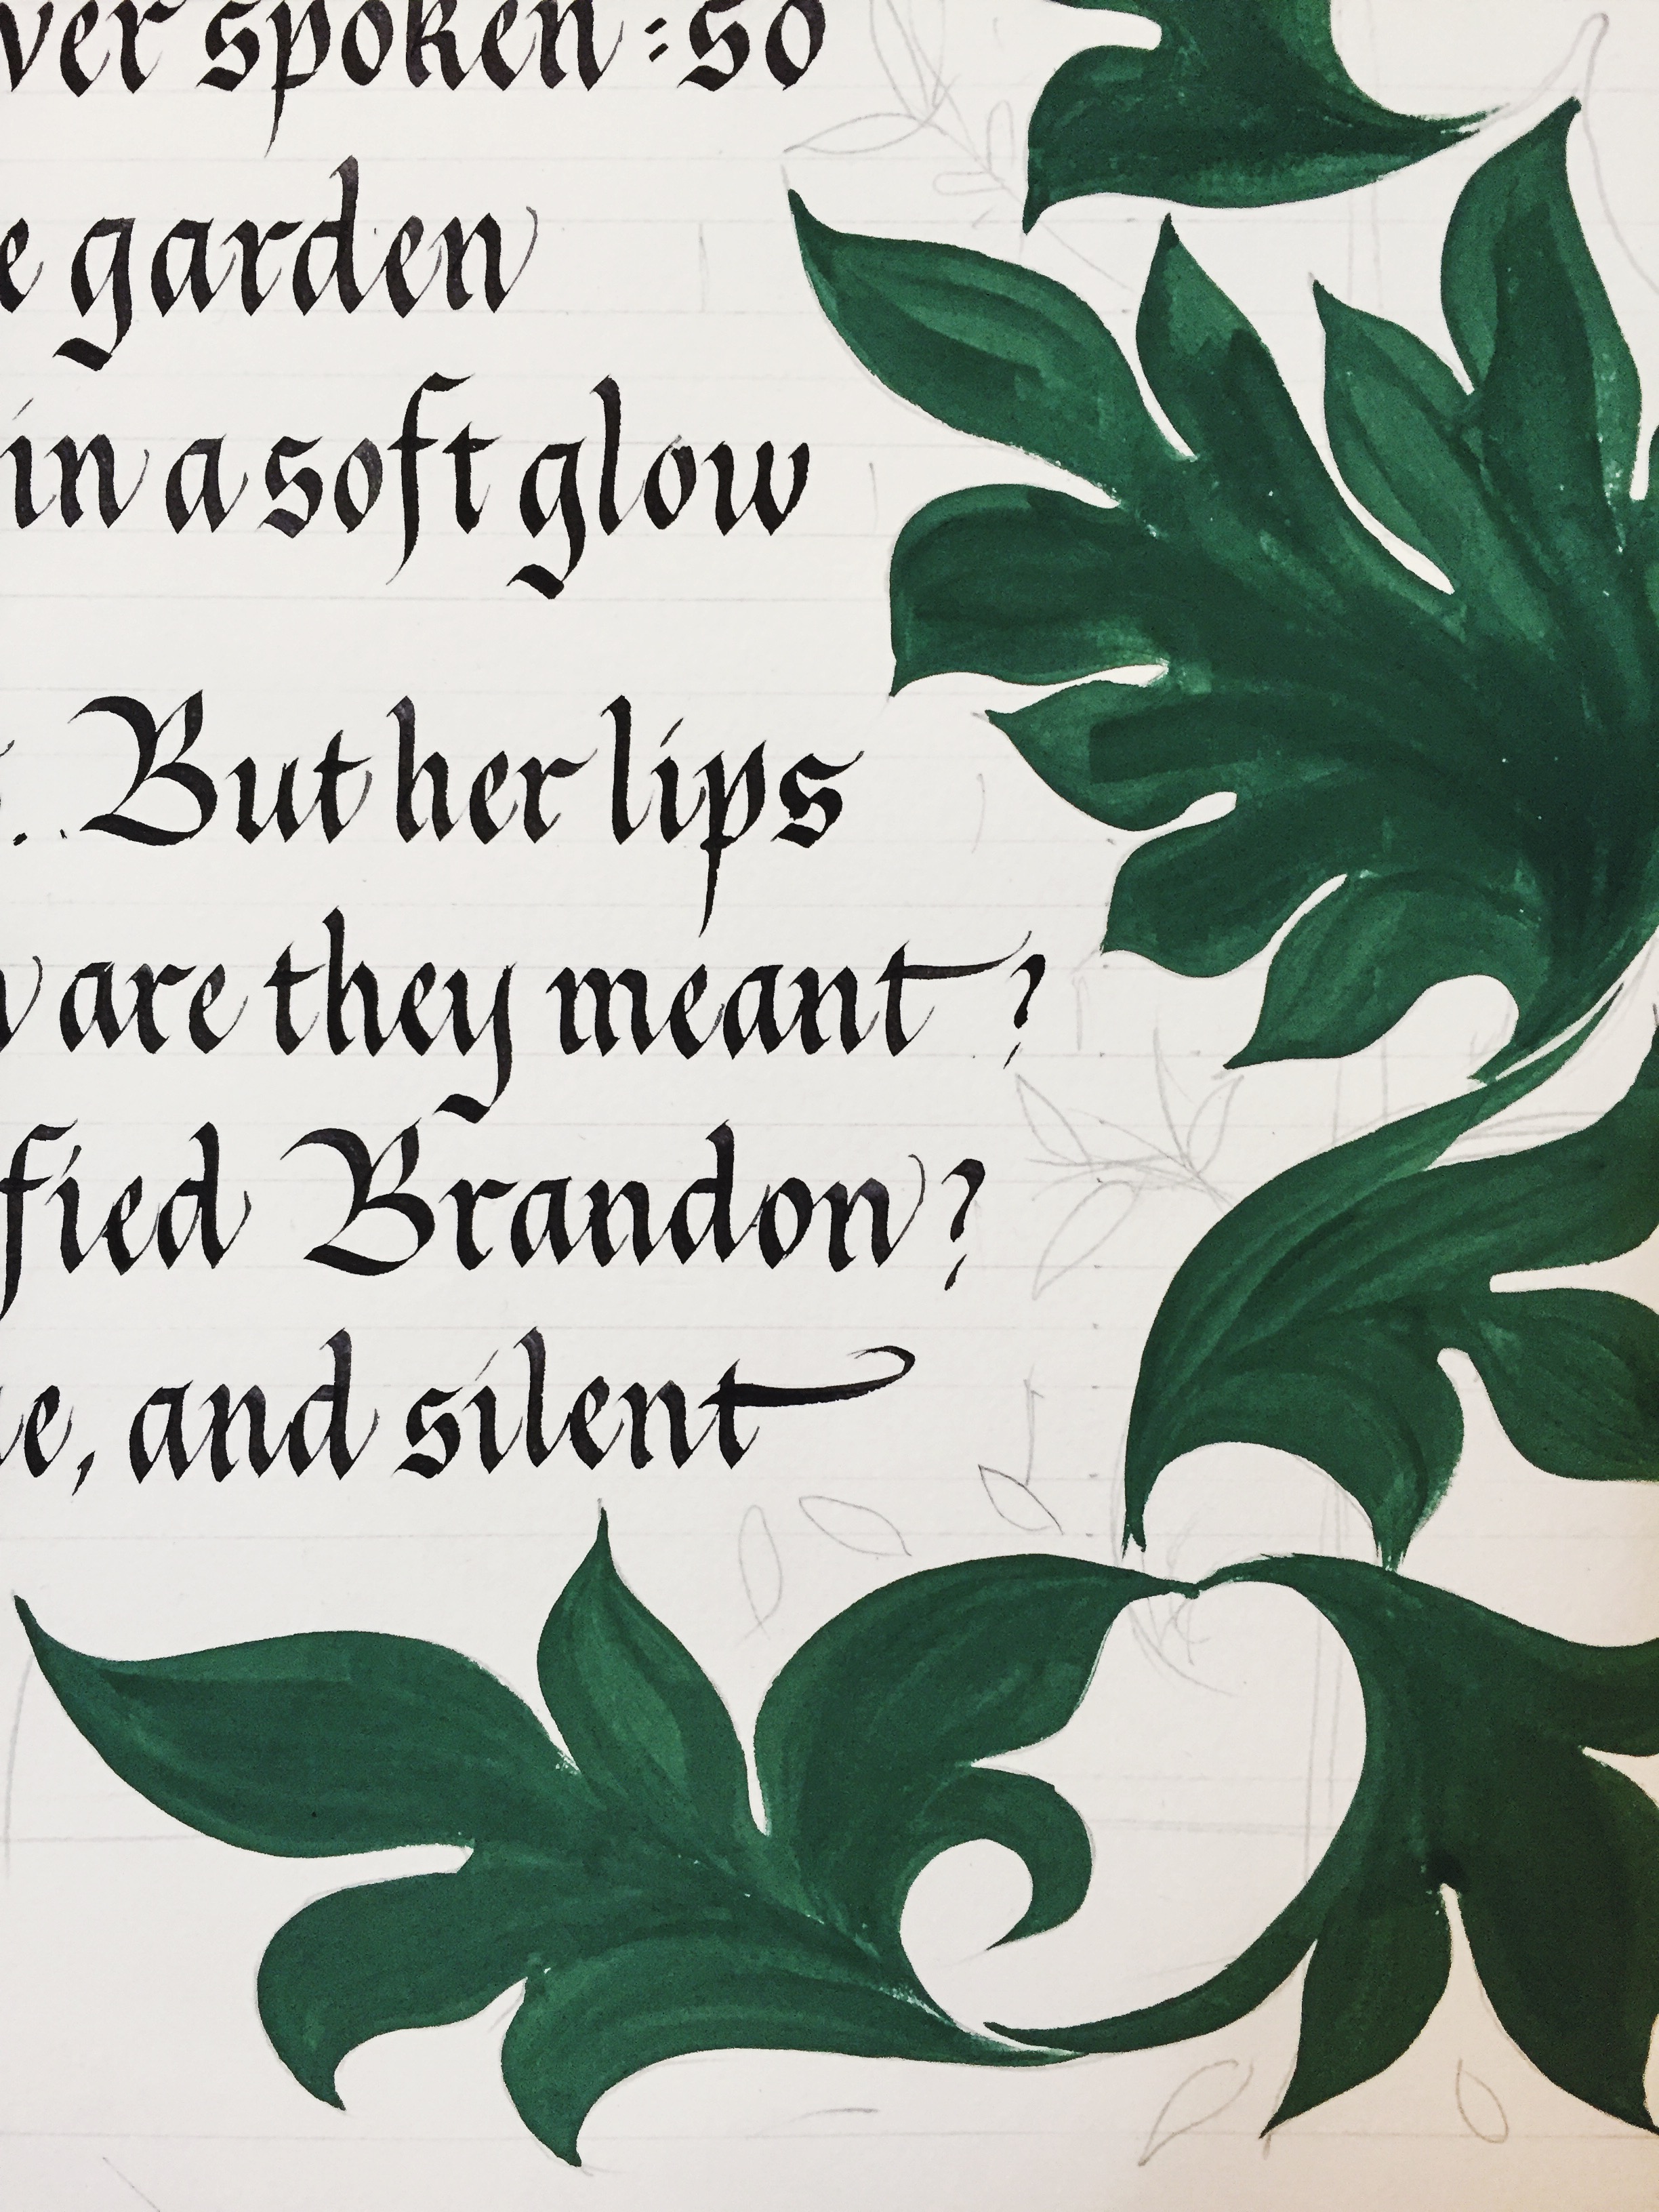 ver spoken: so
e garden
in a soft glow
. But her lips
are they meant?
fied Brandon?
e, and silent